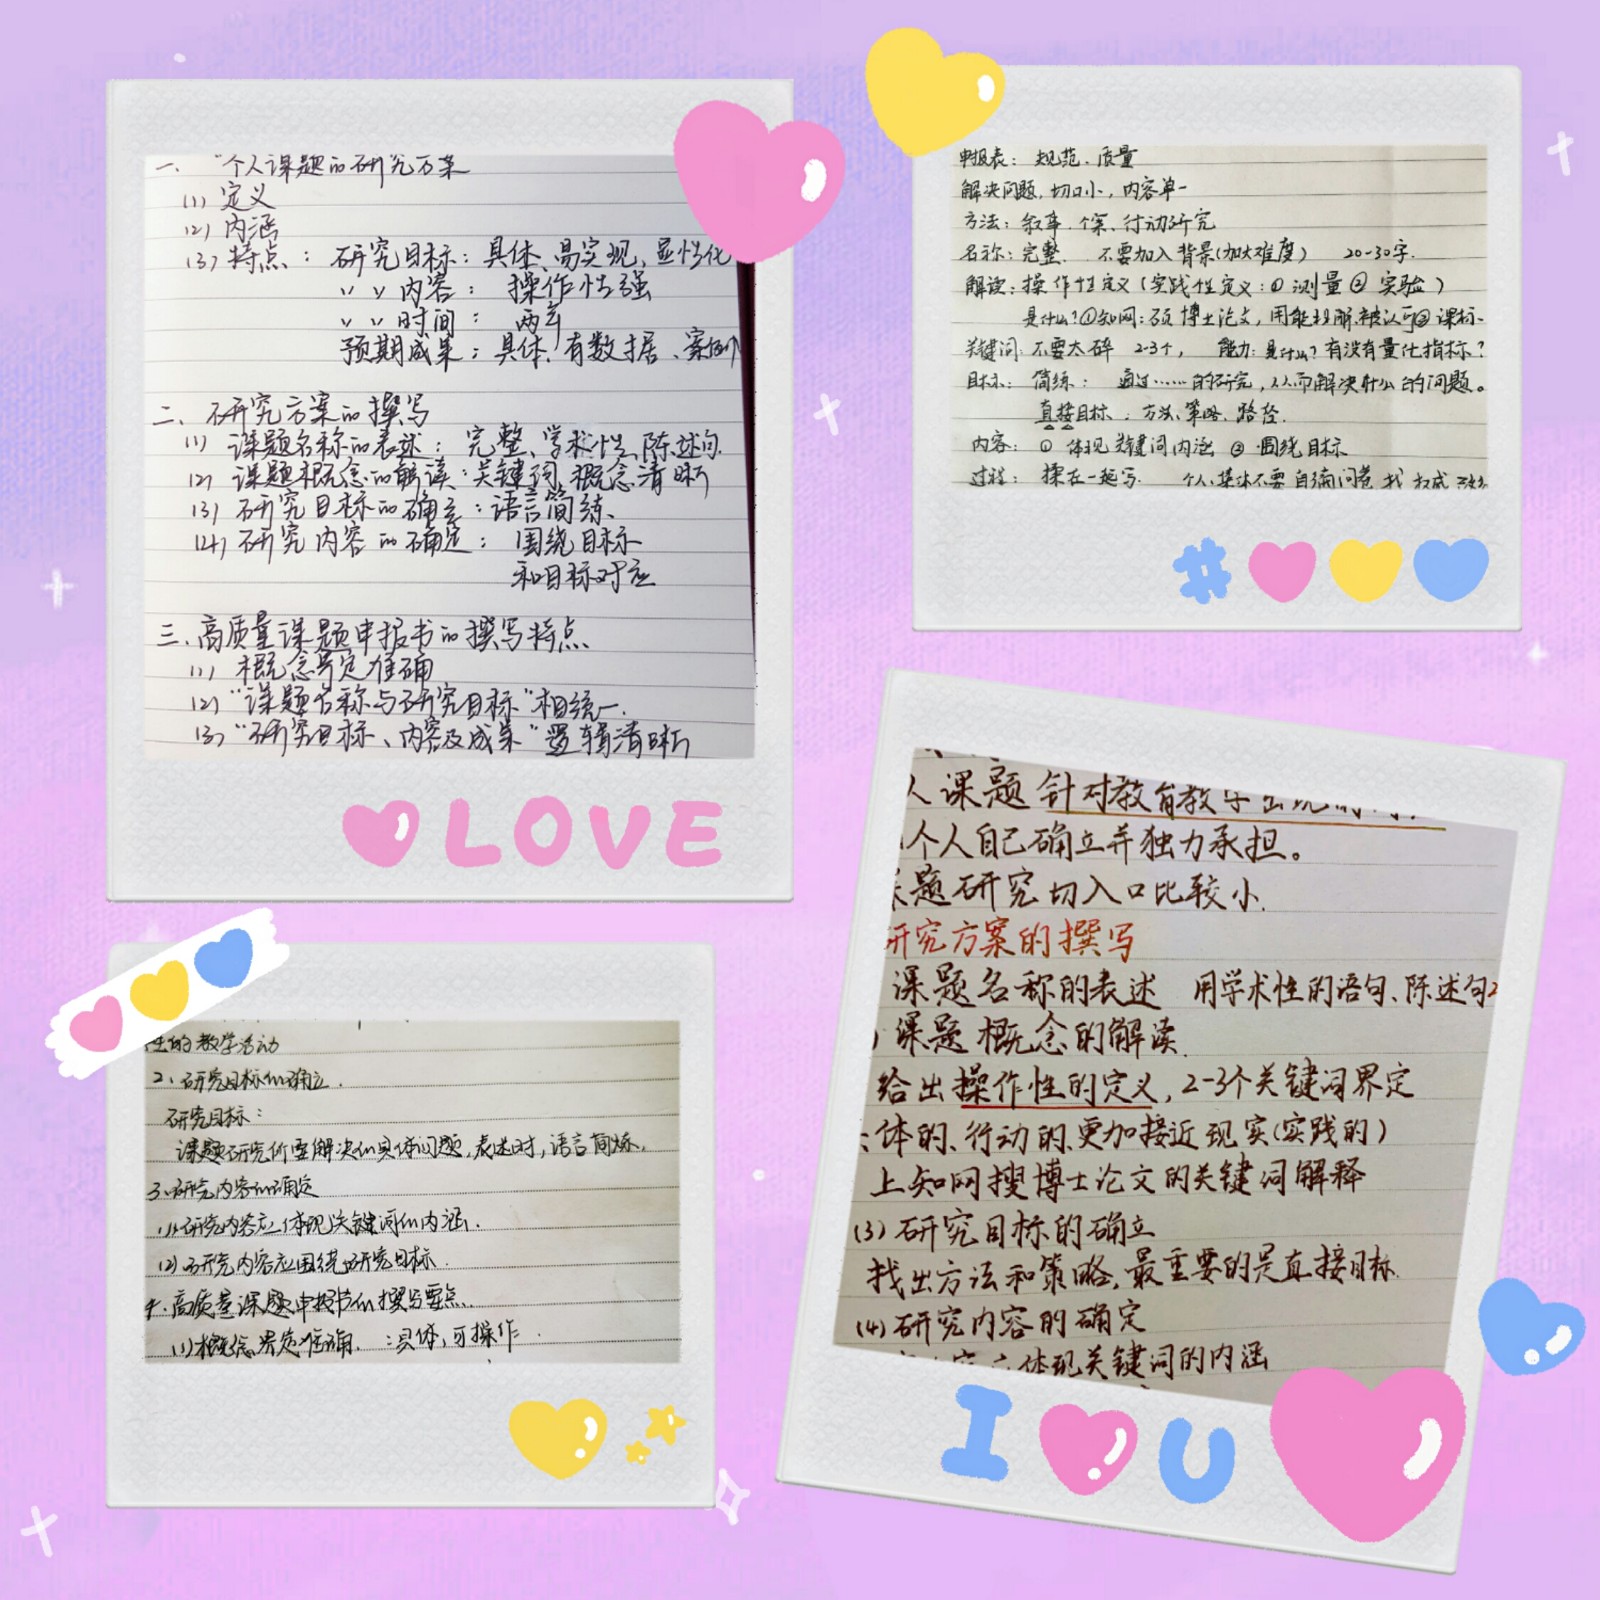 一、"个人课题的研究方案
(1) 定义
(2) 内涵
(3) 特点：研究目标：具体、易实现、显性化
〃 〃 内容：操作性强
〃 〃 时间：两年
预期成果：具体、有数据、案例
二、研究方案的撰写
(1) 课题名称的表述：完整、学术性、陈述句.
(2) 课题概念的解读：关键词、概念清晰
(3) 研究目标的确立：语言简练、
(4) 研究内容的确定：围绕目标
和目标对应
三、高质量课题申报书的撰写特点
(1) 概念界定准确
(2) "课题名称与研究目标"相统一.
(3) "研究目标、内容及成果"逻辑清晰
LOVE
申报表：规范、质量
解决问题，切口小，内容单一
方法：叙事、个案、行动研究
名称：完整、不要加入背景(加大难度) 20-30字.
解读：操作性定义(实践性定义：① 测量 ② 实验)
是什么？①知网：硕博士论文，用能理解、被认可 ②课标、
关键词：不要太碎 2-3个， 能力：是什么？有没有量化指标？
目标：简练： 通过……的研究，从而解决什么的问题。
直接目标：方法、策略、路径.
内容：① 体现关键词内涵 ② 围绕目标
过程：揉在一起写. 个人、集体不要自编问卷 找权威
#
性的教学活动
2、研究目标的确立.
研究目标：
课题研究所要解决的具体问题，表述时，语言简炼.
3、研究内容的确定
(1) 研究内容应体现关键词的内涵.
(2) 研究内容应围绕研究目标.
4、高质量课题申报书的撰写要点.
(1) 概念界定准确. ：具体，可操作.
人课题 针对教育教学出现的
个人自己确立并独力承担。
课题研究切入口比较小.
研究方案的撰写
课题名称的表述 用学术性的语句、陈述句2
) 课题概念的解读.
给出操作性的定义，2-3个关键词界定
体的、行动的、更加接近现实(实践的)
上知网搜博士论文的关键词解释
(3) 研究目标的确立
找出方法和策略，最重要的是直接目标.
(4) 研究内容的确定
体现关键词的内涵
I U